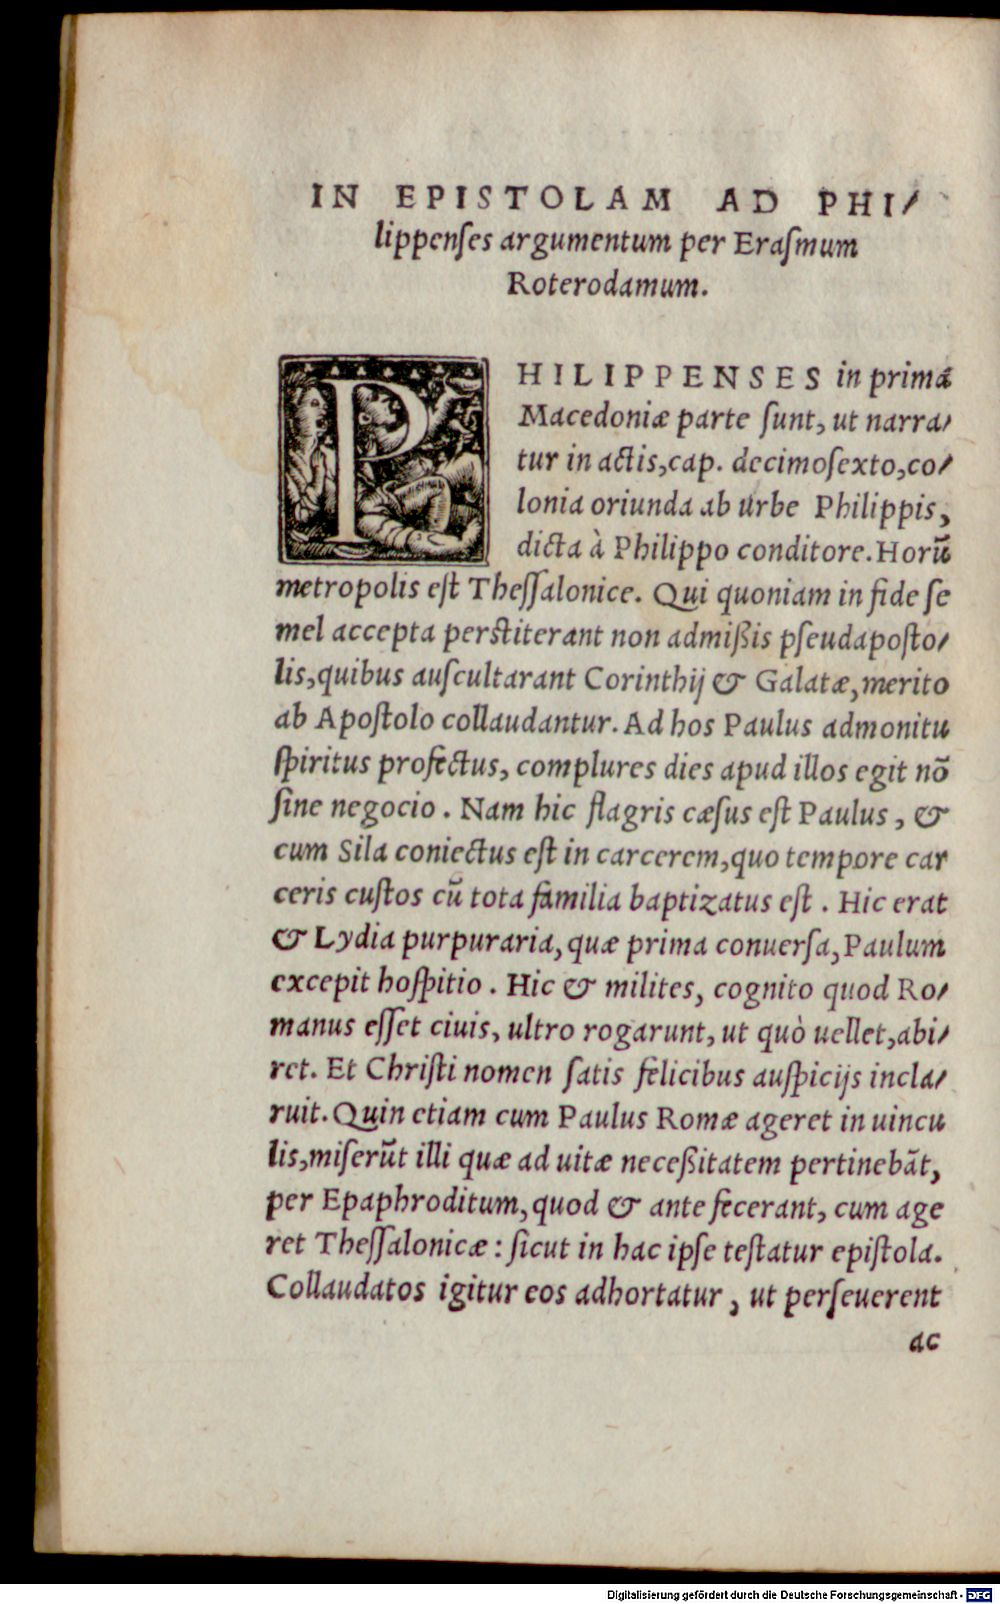 IN EPISTOLAM AD PHI/
lippenses argumentum per Erasmum
Roterodamum.
PHILIPPENSES in primã
Macedoniæ parte ſunt, ut narra/
tur in actis, cap. decimoſexto, co/
lonia oriunda ab urbe Philippis,
dicta à Philippo conditore. Horũ
metropolis eſt Theſſalonice. Qui quoniam in fide ſe
mel accepta perſtiterant non admißis pſeudapoſto/
lis, quibus auſcultarant Corinthij & Galatæ, merito
ab Apoſtolo collaudantur. Ad hos Paulus admonitu
ſpiritus profectus, complures dies apud illos egit nõ
ſine negocio. Nam hic flagris cæſus eſt Paulus, &
cum Sila coniectus eſt in carcerem, quo tempore car
ceris cuſtos cũ tota familia baptizatus eſt. Hic erat
& Lydia purpuraria, quæ prima conuerſa, Paulum
excepit hoſpitio. Hic & milites, cognito quod Ro/
manus eſſet ciuis, ultro rogarunt, ut quò uellet, abi/
ret. Et Chriſti nomen ſatis felicibus auſpicijs incla/
ruit. Quin etiam cum Paulus Romæ ageret in uincu
lis, miſerũt illi quæ ad uitæ neceßitatem pertinebãt,
per Epaphroditum, quod & ante fecerant, cum age
ret Theſſalonicæ: ſicut in hac ipſe teſtatur epiſtola.
Collaudatos igitur eos adhortatur, ut perſeuerent
ac
Digitalisierung gefördert durch die Deutsche Forschungsgemeinschaft - DFG